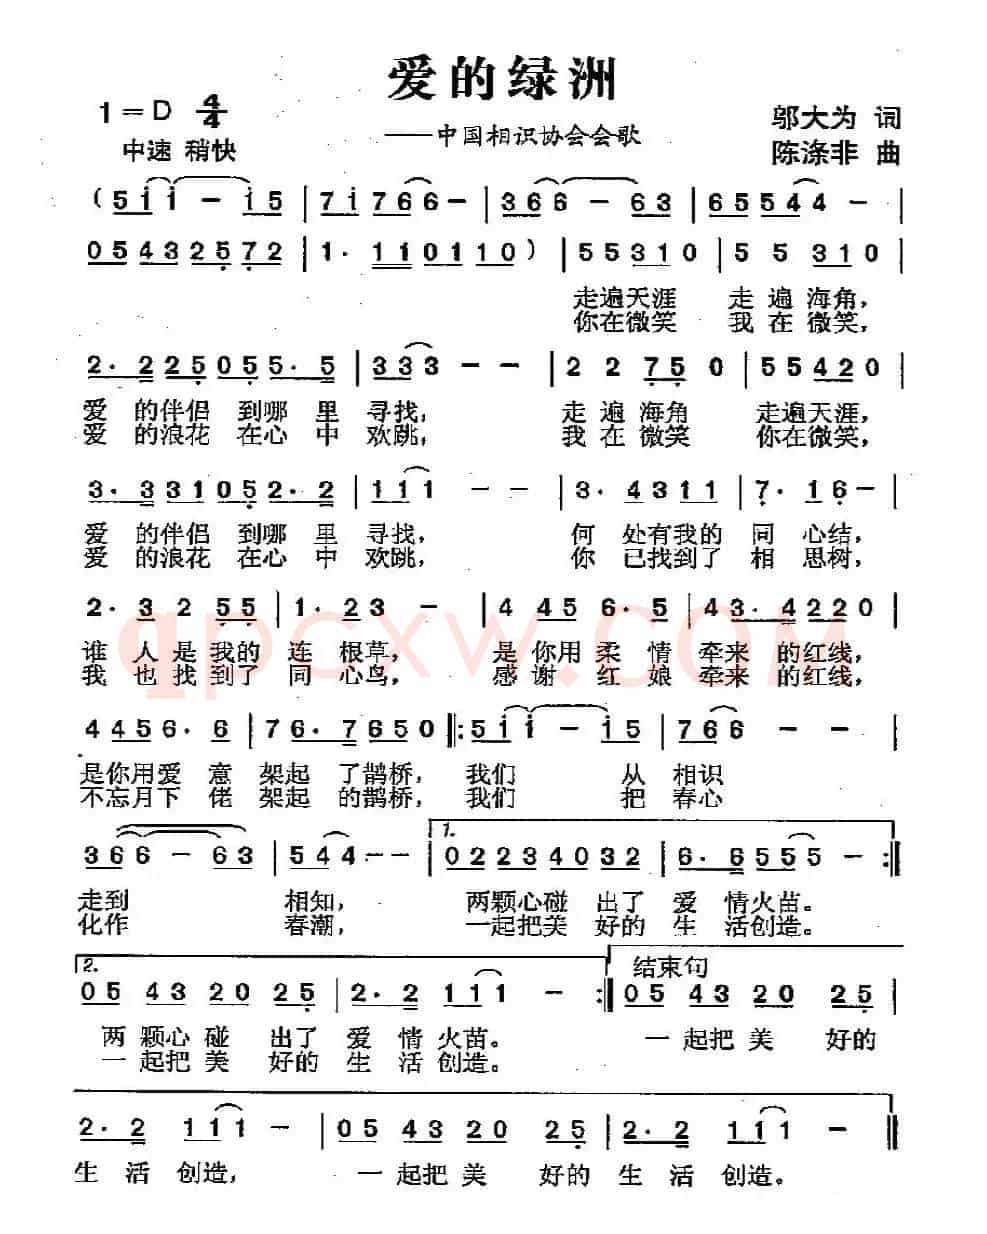 爱的绿洲
1=D 4/4
——中国相识协会会歌
邬大为 词
中速 稍快
陈涤非 曲
( 5 i i - i 5 | 7 i 7 6 6 - | 3 6 6 - 6 3 | 6 5 5 4 4 - |
0 5 4 3 2 5 7 2 | 1· 1 1 0 1 1 0 ) | 5 5 3 1 0 | 5 5 3 1 0 |
走遍天涯 走遍海角,
你在微笑 我在微笑,
2· 2 2 5 0 5 5· 5 | 3 3 3 - - | 2 2 7 5 0 | 5 5 4 2 0 |
爱 的伴侣 到哪 里 寻找; 走遍海角 走遍天涯,
爱 的浪花 在心 中 欢跳, 我在微笑 你在微笑,
3· 3 3 1 0 5 2· 2 | 1 1 1 - - | 3· 4 3 1 1 | 7· 1 6 - |
爱 的伴侣 到哪 里 寻找, 何 处有我的 同 心结,
爱 的浪花 在心 中 欢跳, 你 已找到了 相 思树,
2· 3 2 5 5 | 1· 2 3 - | 4 4 5 6· 5 | 4 3· 4 2 2 0 |
谁 人 是 我的 连 根草, 是 你用 柔 情 牵来 的红线,
我 也 找 到了 同 心鸟, 感 谢 红 娘 牵来 的红线,
4 4 5 6· 6 | 7 6· 7 6 5 0 |: 5 i i - i 5 | 7 6 6 - - |
是你用爱 意 架起 了鹊桥, 我们 从 相识
不忘月下 佬 架起 的鹊桥, 我们 把 春心
3 6 6 - 6 3 | 5 4 4 - - | 1. 0 2 2 3 4 0 3 2 | 6· 6 5 5 5 - :|
走到 相知, 两颗心碰 出了 爱 情火苗。
化作 春潮, 一起把美 好的 生 活创造。
2. 结束句
0 5 4 3 2 0 2 5 | 2· 2 1 1 1 - :| 0 5 4 3 2 0 2 5 |
两 颗心 碰 出了 爱 情 火苗。 一起把 美 好的
一起把 美 好的 生 活 创造。
2· 2 1 1 1 - | 0 5 4 3 2 0 2 5 | 2· 2 1 1 1 - ||
生 活 创造, 一起把 美 好的 生 活 创造。
qpcxw.com